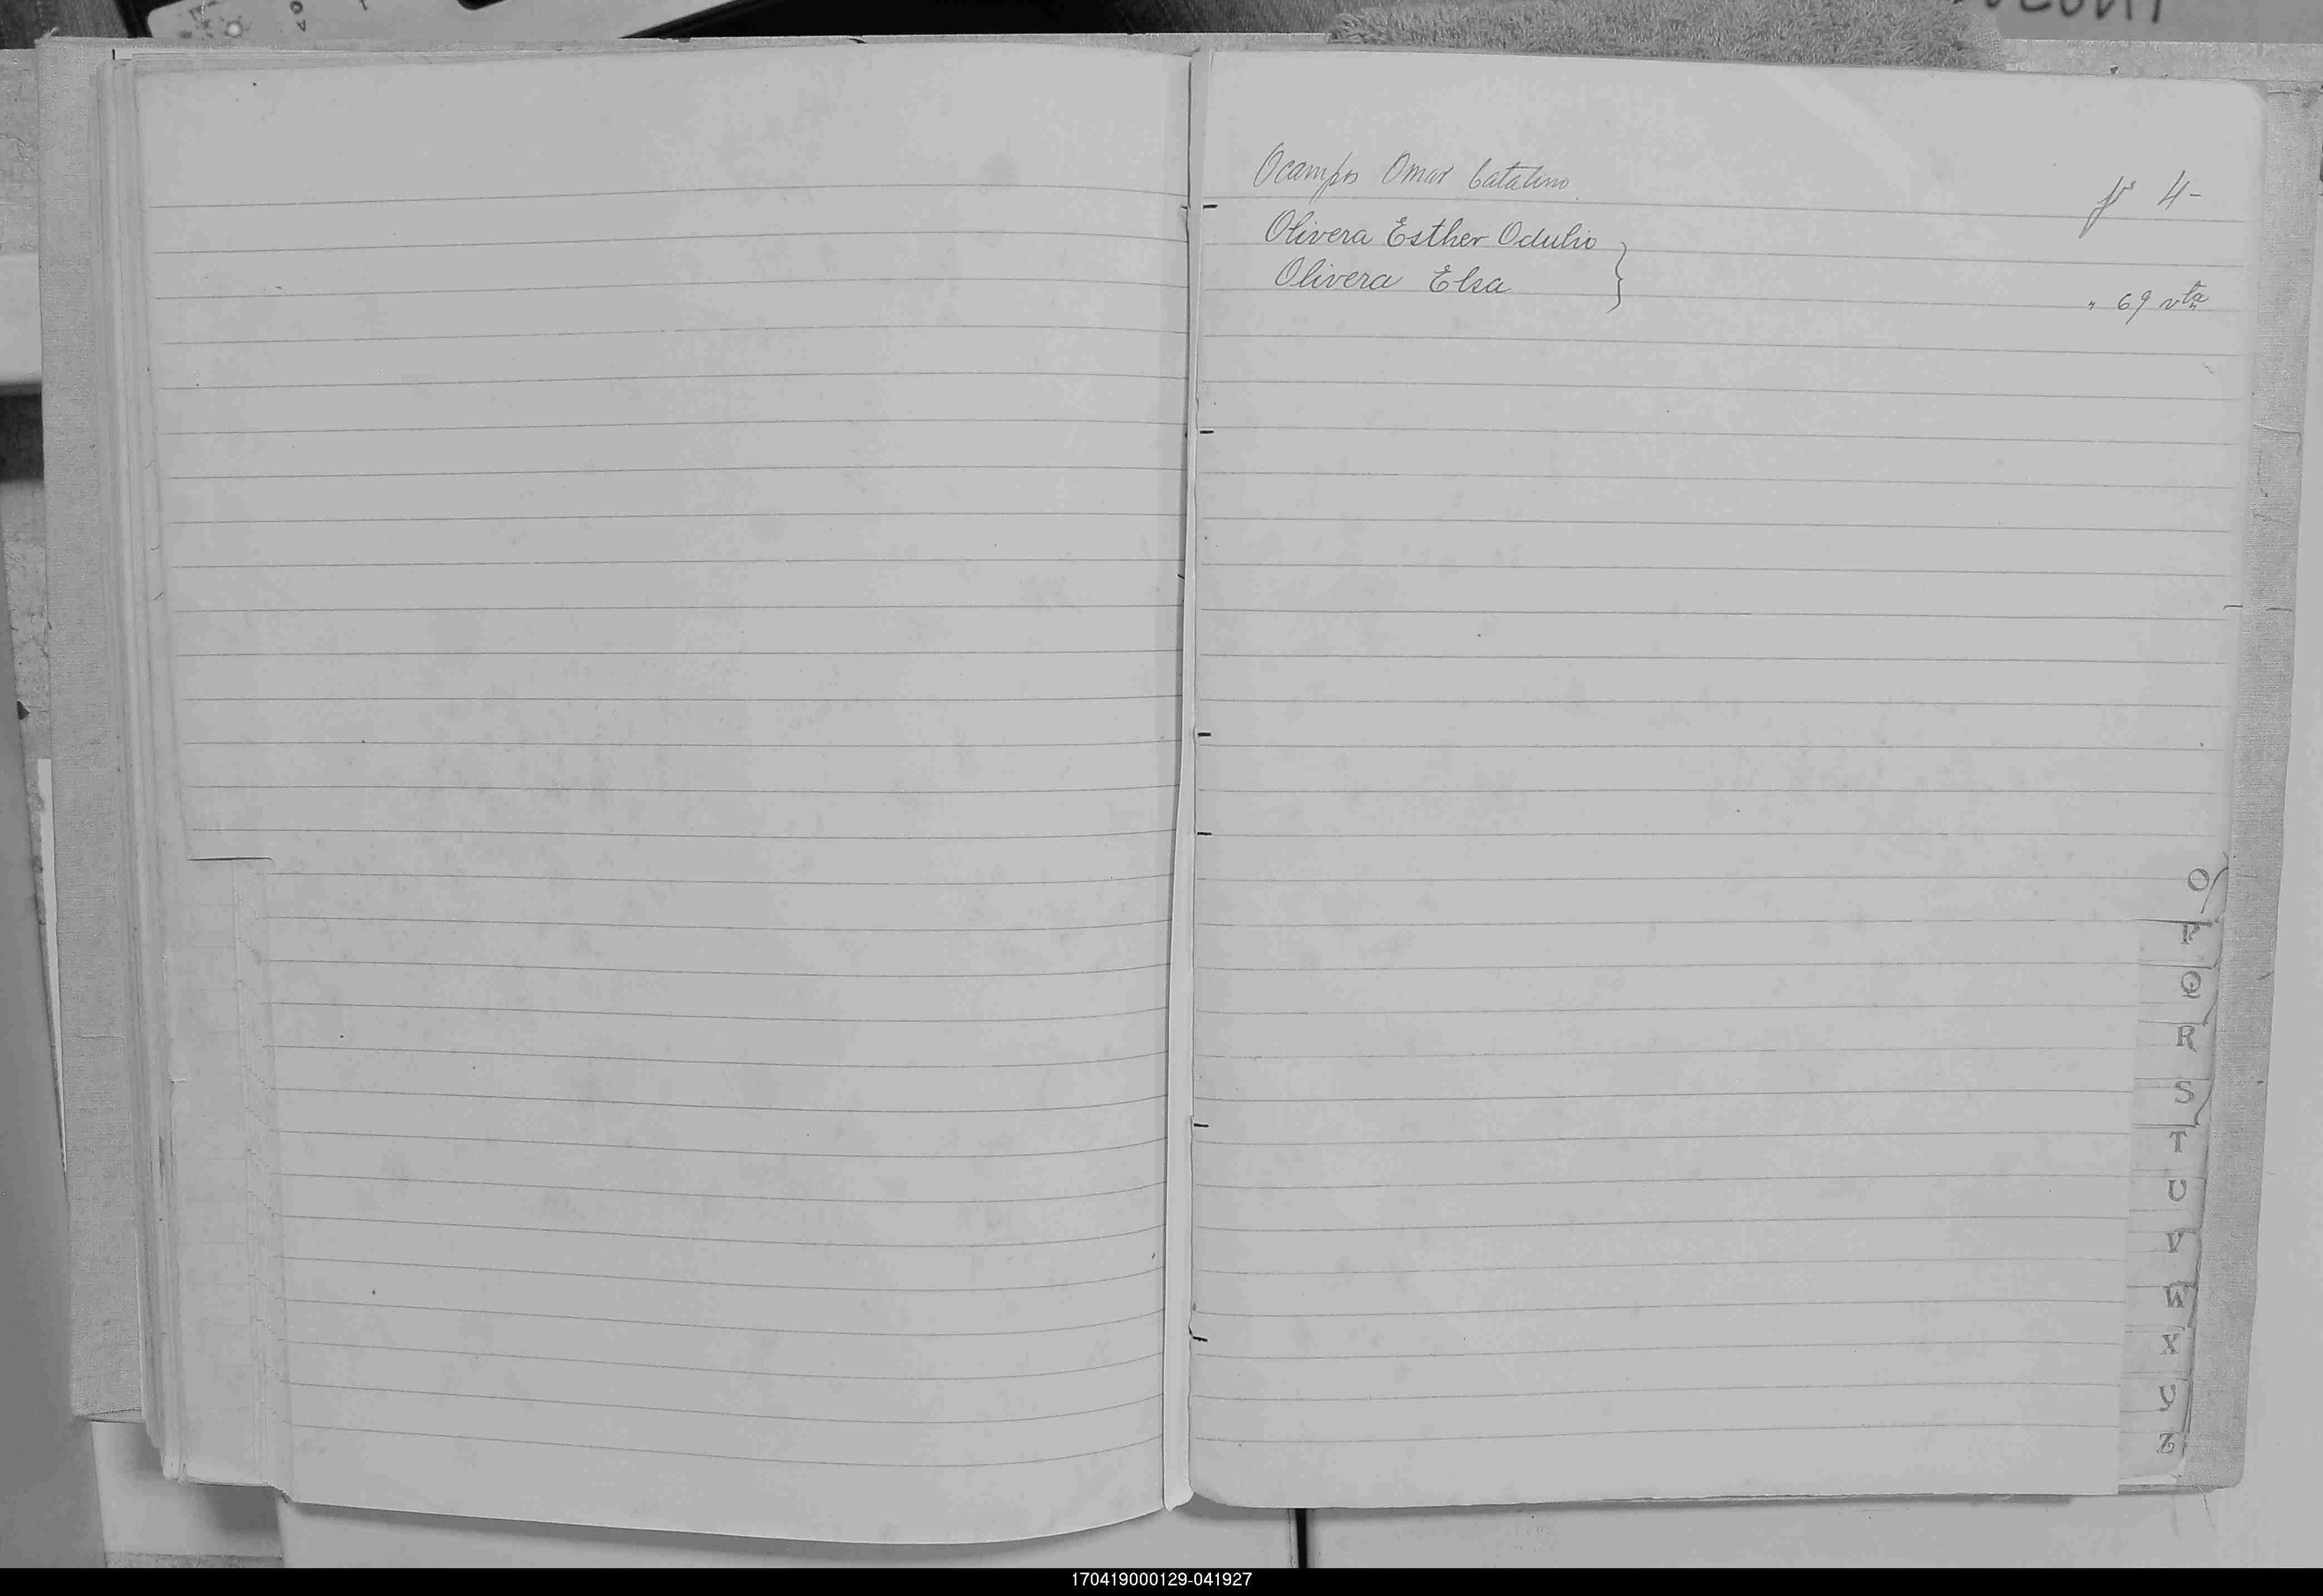 Ocampos Omar Catalino fº 4-
Olivera Esther Odulio }
Olivera Elsa } " 69 vta
O
P
Q
R
S
T
U
V
W
X
Y
Z
170419000129-041927